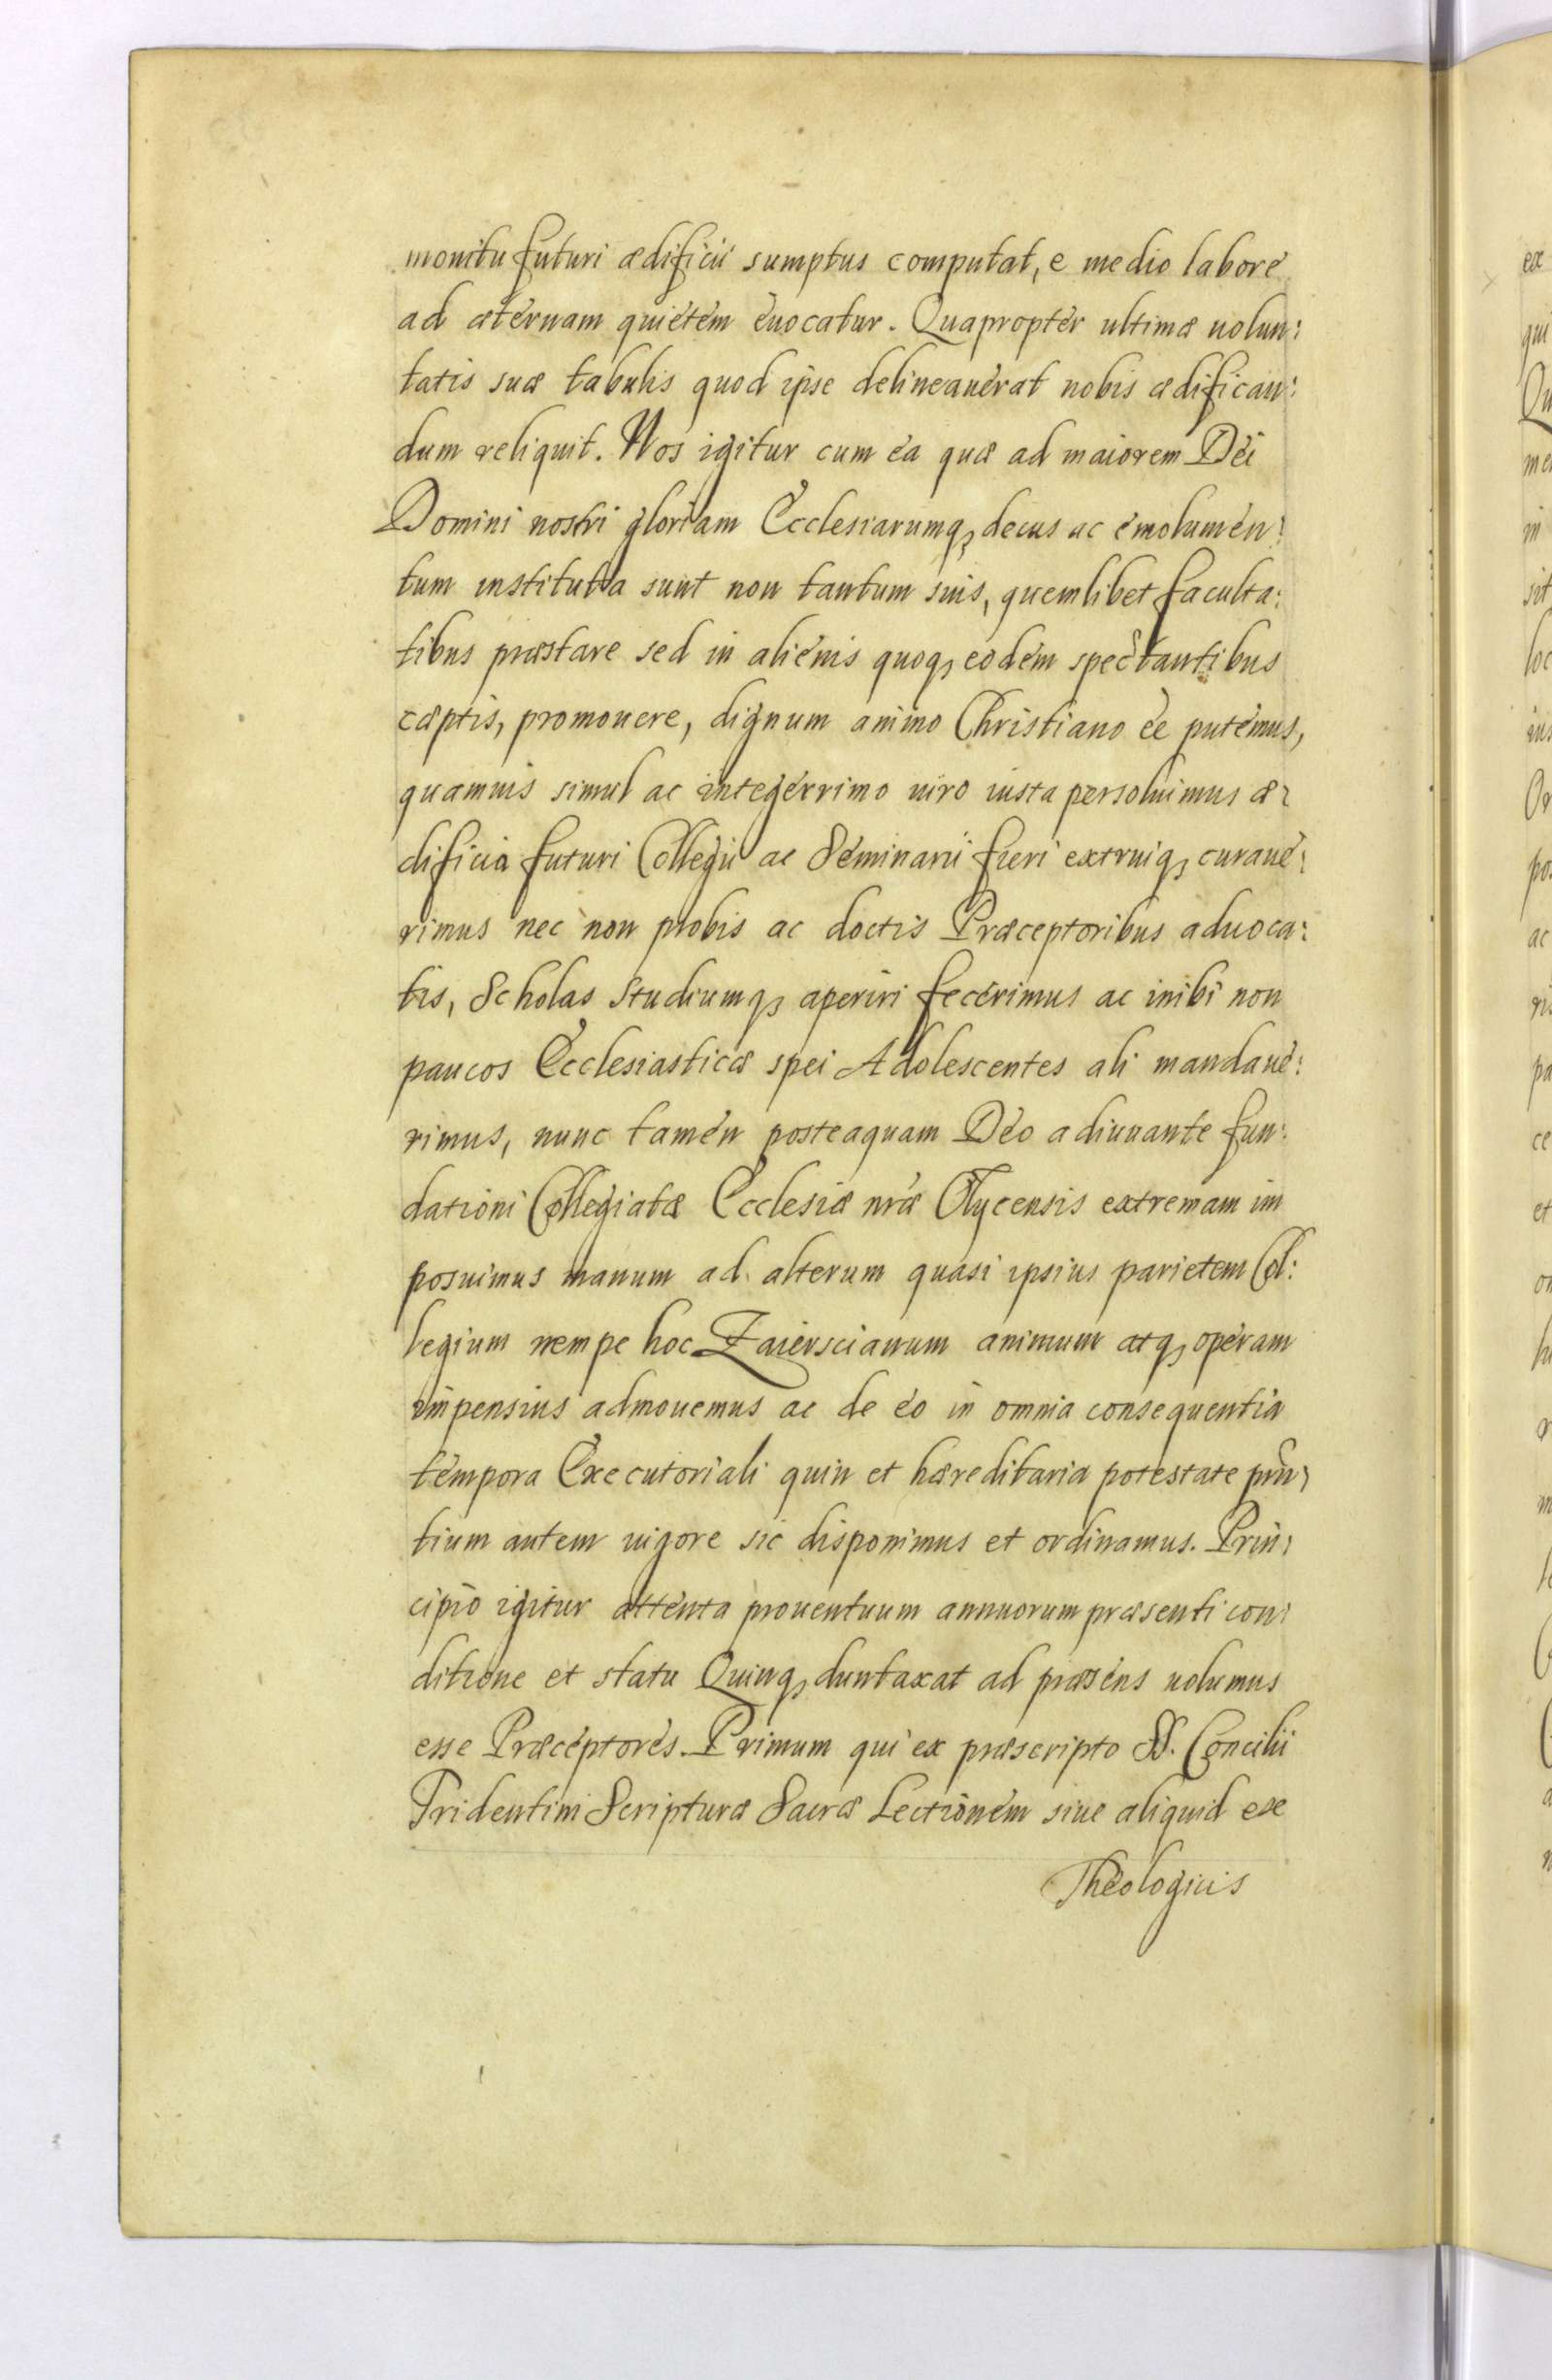 monitu futuri ædificii sumptus computat, e medio labore
ad æternam quietem euocatur. Quapropter ultimæ uolun:
tatis suæ tabulis quod ipse delineauerat nobis ædifican:
dum reliquit. Nos igitur cum ea quæ ad maiorem Dei
Domini nostri gloriam Ecclesiarumq; decus ac emolumen:
tum instituta sunt non tantum suis, quemlibet faculta:
tibus præstare sed in alienis quoq; eodem spectantibus
cæptis, promouere, dignum animo Christiano ee putemus,
quamuis simul ac integerrimo uiro iusta persoluimus æ:
dificia futuri Collegii ac Seminarii fieri extruiq; curaue:
rimus nec non probis ac doctis Præceptoribus aduoca:
tis, Scholas Studiumq; aperiri fecerimus ac inibi non
paucos Ecclesiasticæ spei Adolescentes ali mandaue:
rimus, nunc tamen posteaquam Deo adiuuante fun:
dationi Collegiatæ Ecclesiæ nræ Olycensis extremam im
posuimus manum ad alterum quasi ipsius parietem Col:
legium nempe hoc Zaierscianum animum atq; operam
impensius admouemus ac de eo in omnia consequentia
tempora Executoriali quin et hæreditaria potestate prn:
tium autem uigore sic disponimus et ordinamus. Prin:
cipio igitur attenta prouentuum annuorum præsenti con:
ditione et statu Quinq; duntaxat ad præsens uolumus
esse Præceptores. Primum qui ex præscripto SS. Concilii
Tridentini Scripturæ Sacræ Lectionem siue aliquid ex
Theologicis